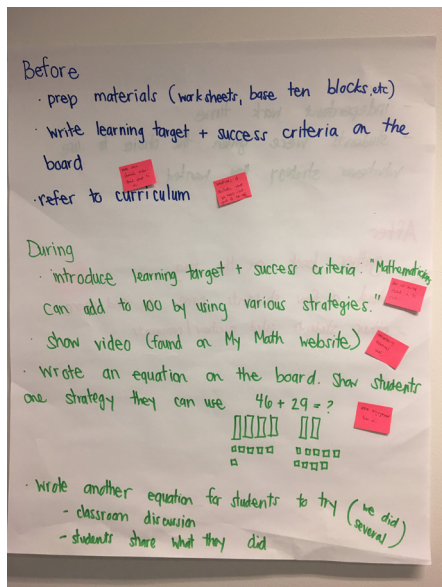 Before
· prep materials (worksheets, base ten blocks, etc)
· write learning target + success criteria on the
board
· refer to curriculum
During
· introduce learning target + success criteria. "Mathematicians
can add to 100 by using various strategies."
· show video (found on My Math website)
· wrote an equation on the board. Show students
one strategy they can use 46 + 29 = ?
· wrote another equation for students to try (we did
several)
- classroom discussion
- students share what they did